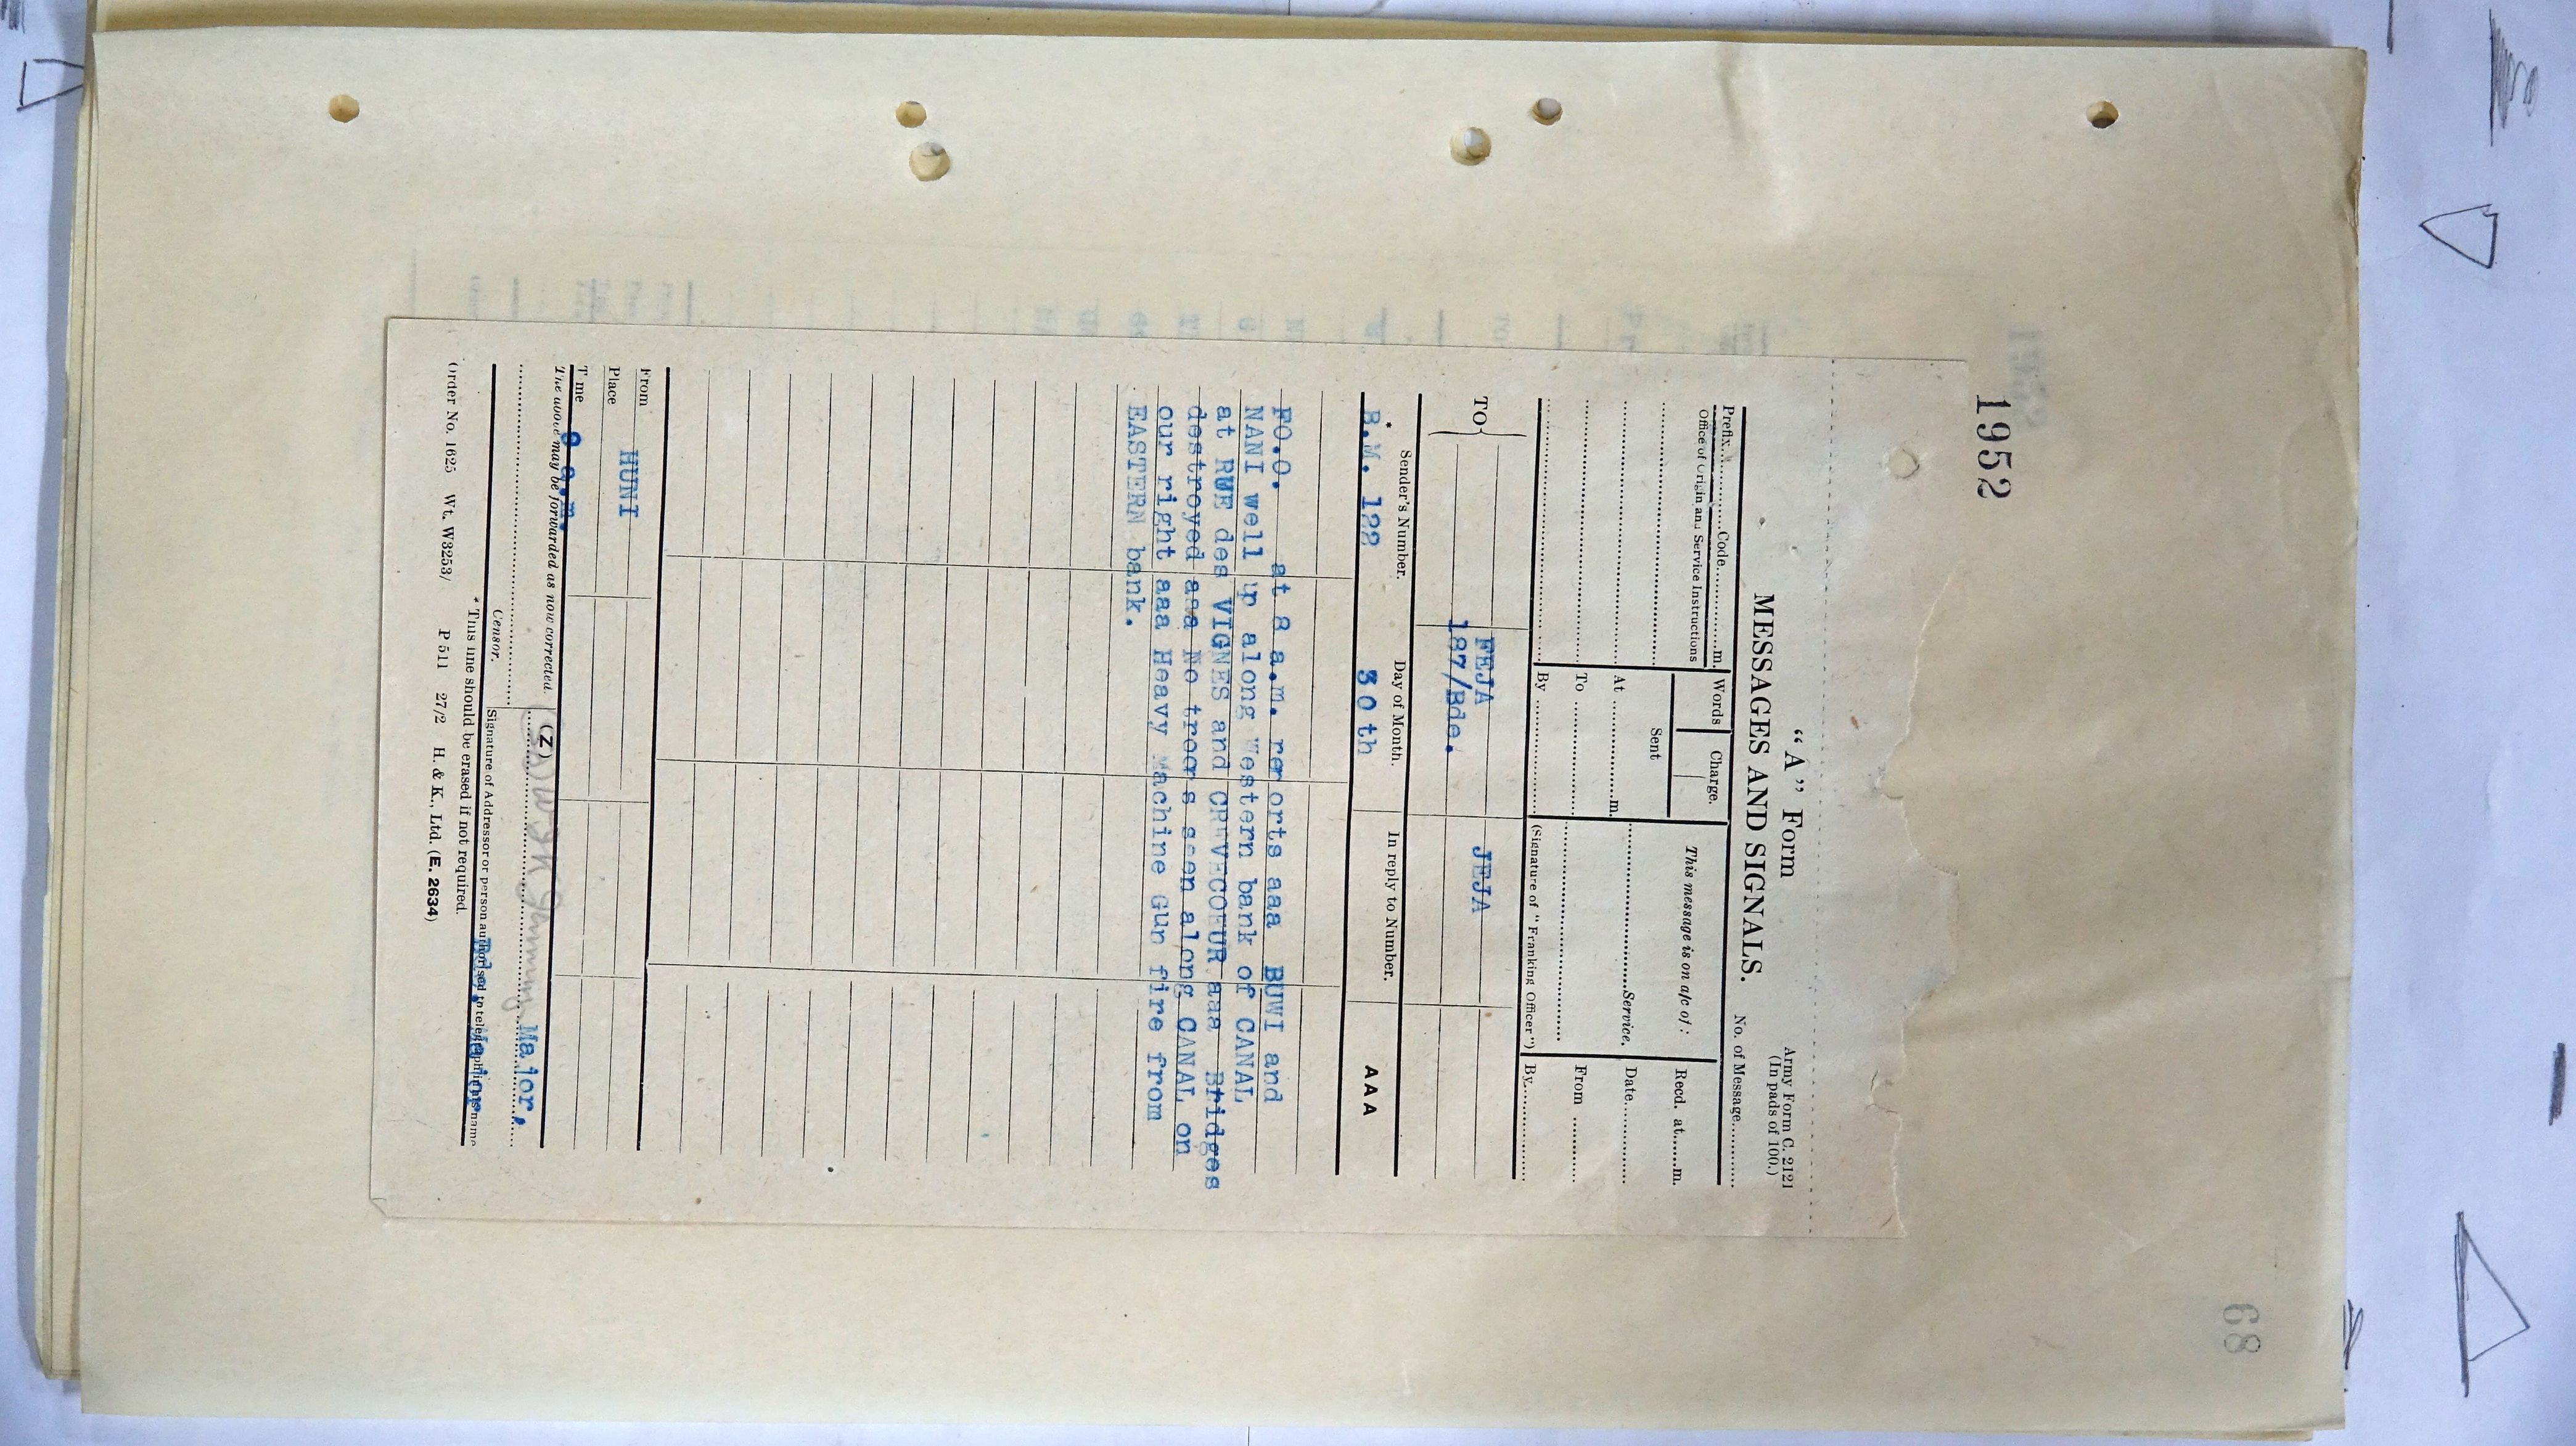 1952
68
"A" Form
Army Form C. 2121
(In pads of 100.)
MESSAGES AND SIGNALS.
No. of Message
Prefix Code m.
Words
Charge.
This message is on a/c of :
Recd. at m.
Office of Origin and Service Instructions
Sent
Date
At m.
Service.
To
From
By
(Signature of "Franking Officer")
By
TO
FEJA
JEJA
187/Bde.
* Sender's Number.
Day of Month.
In reply to Number.
B.M. 122
30th
AAA
FO.O. at 8 a.m. reports aaa BUWI and
NANI well up along Western bank of CANAL
at RUE des VIGNES and CREVECOEUR aaa Bridges
destroyed aaa No troops seen along CANAL on
our right aaa Heavy Machine Gun fire from
EASTERN bank.
From HUNI
Place
Time 9 a.m.
The above may be forwarded as now corrected.
(Z)
Major,
Censor.
Signature of Addressor or person authorised to telegraph in his name
Bde. Major
* This line should be erased if not required.
Order No. 1625 Wt. W3253/ P 511 27/2 H. & K., Ltd. (E. 2634)